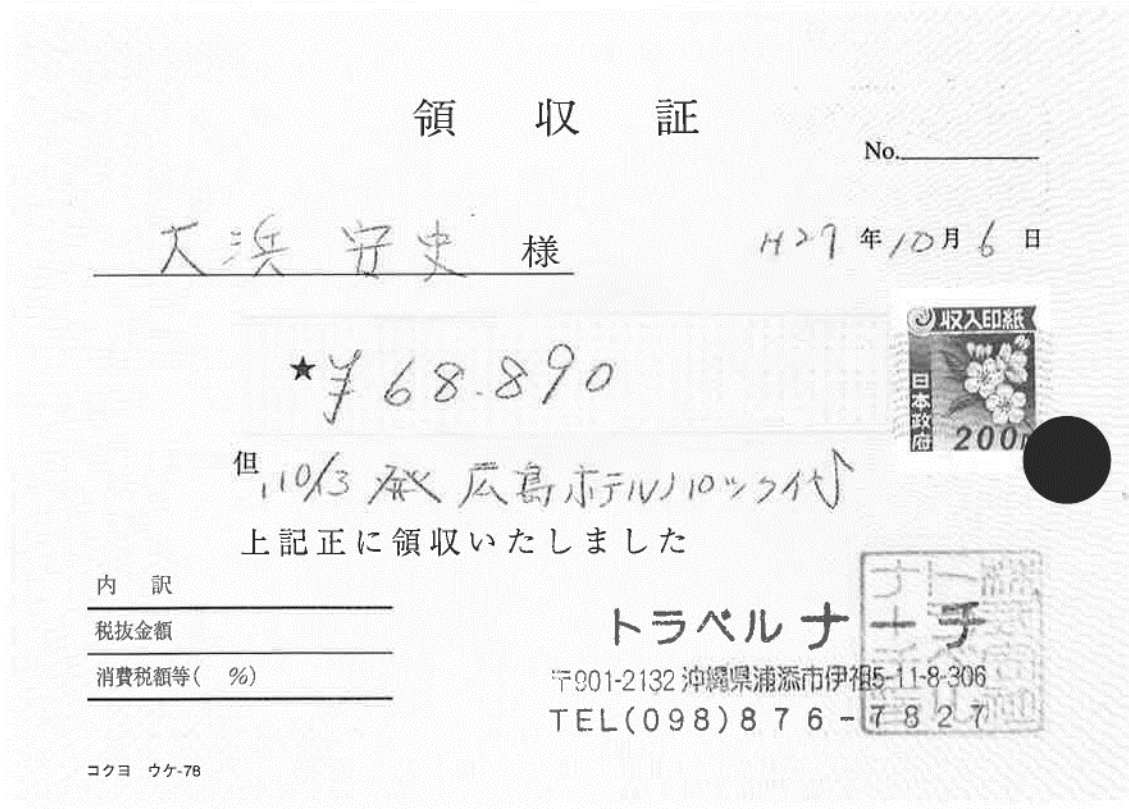 領収証
No.
大浜 安史 様
H29年10月6日
収入印紙
日本政府
200
★¥68.890
但 10/3 発 広島ホテルパック代
上記正に領収いたしました
内 訳
税抜金額
消費税額等( %)
トラベルナーチ
〒901-2132 沖縄県浦添市伊祖5-11-8-306
TEL(098)876-7827
コクヨ ウケ-78